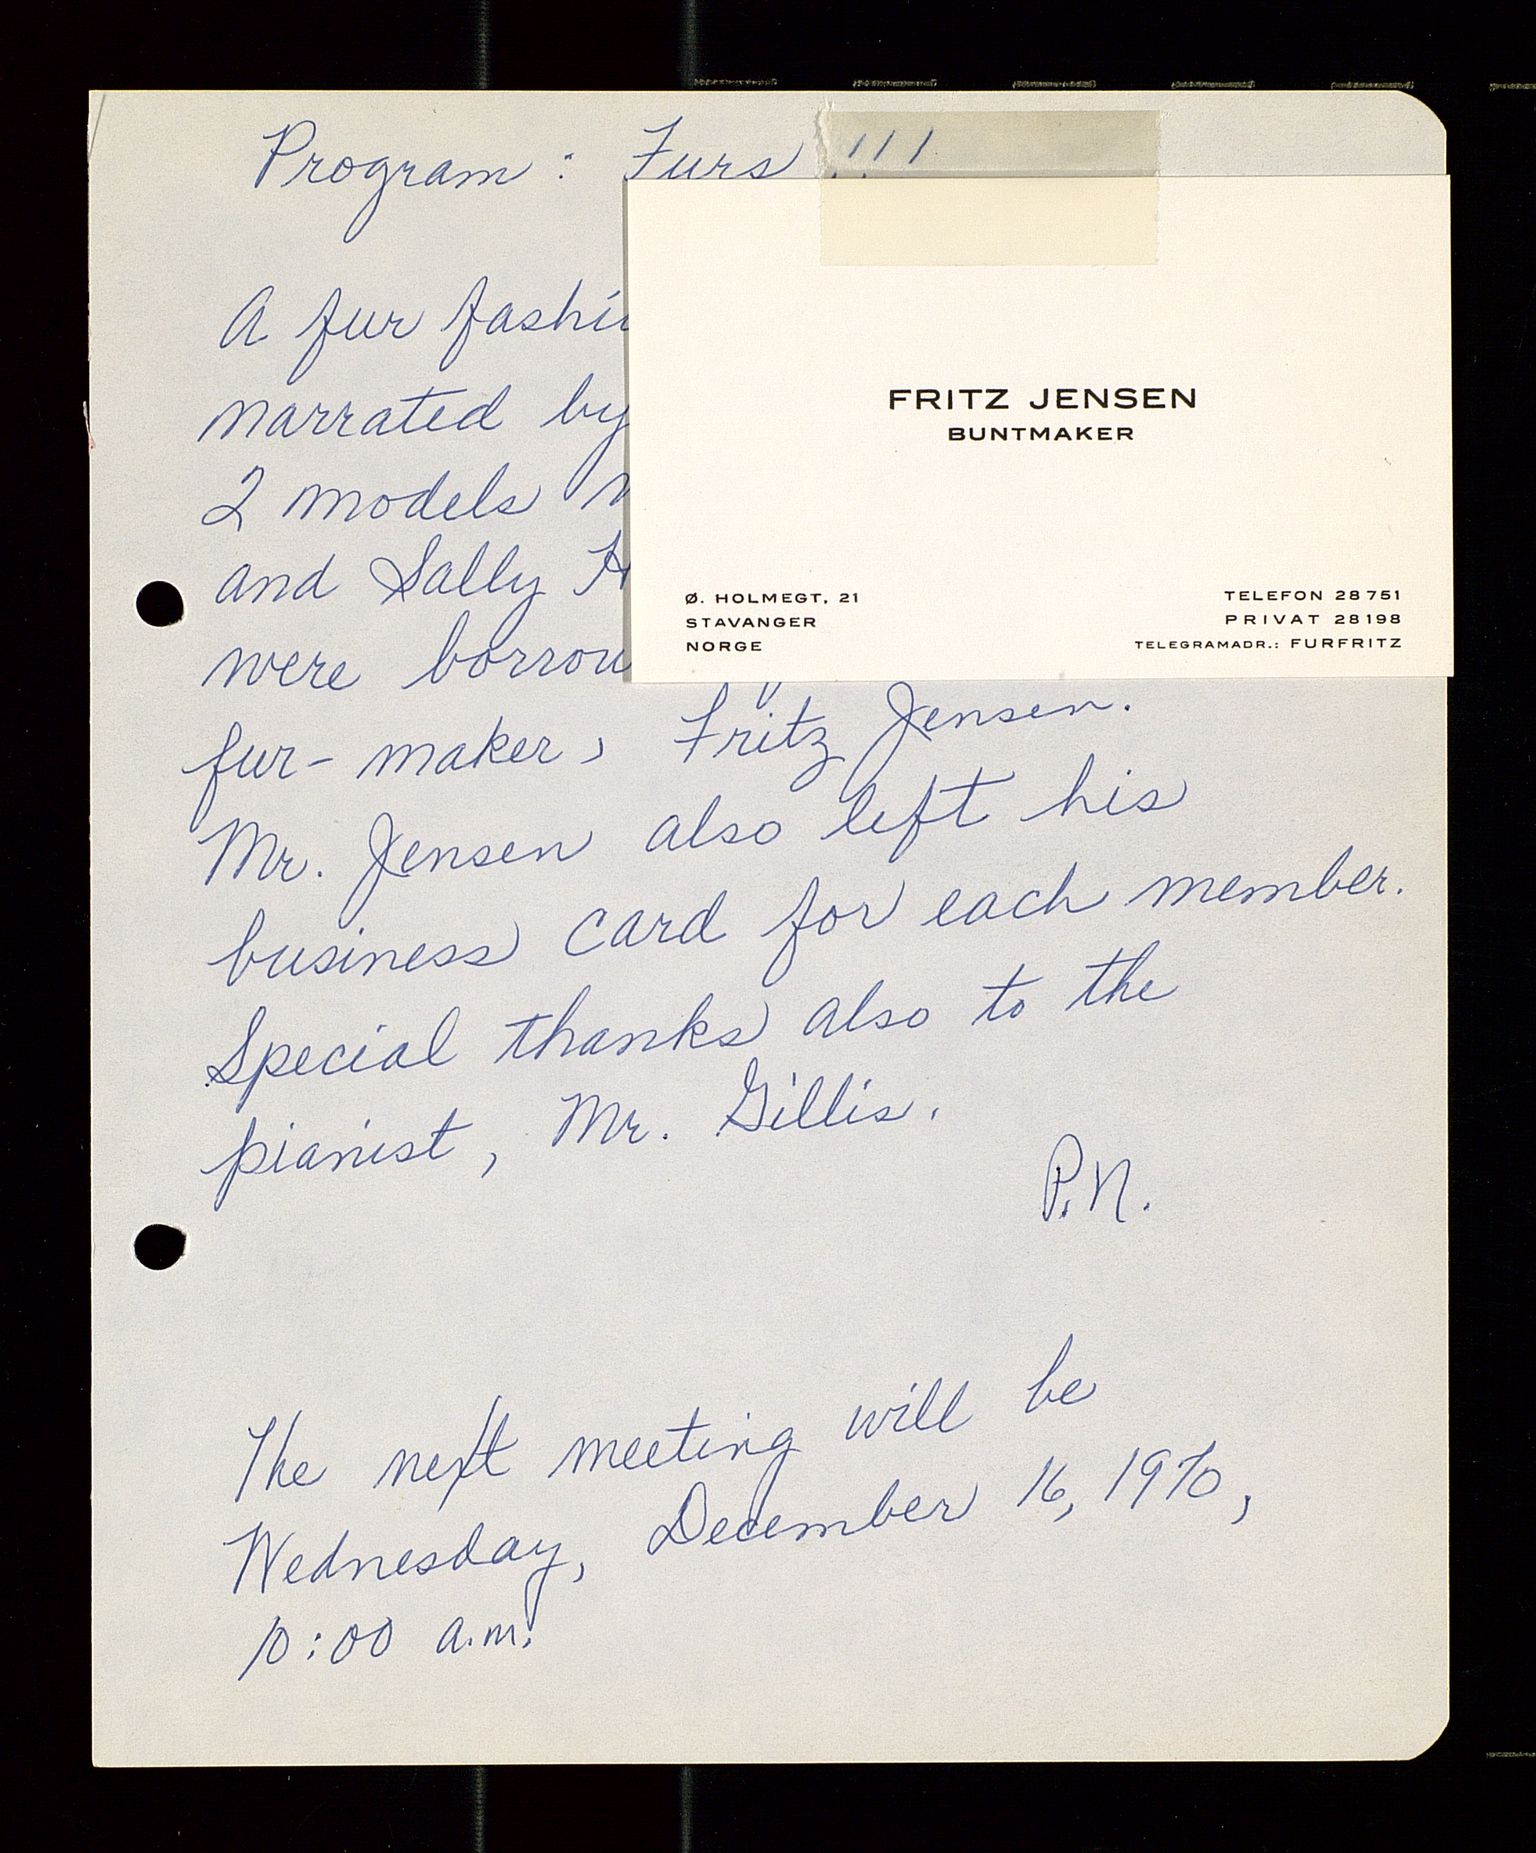 Program : Furs !!!
A fur
narrated by
2 models
and Sally
were
fur-maker, Fritz Jensen.
Mr. Jensen also left his
business card for each member.
Special thanks also to the
pianist, Mr. Gillis.
P.N.
The next meeting will be
Wednesday, December 16, 1970,
10:00 a.m.
FRITZ JENSEN
BUNTMAKER
Ø. HOLMEGT. 21
STAVANGER
NORGE
TELEFON 28 751
PRIVAT 28 198
TELEGRAMADR.: FURFRITZ